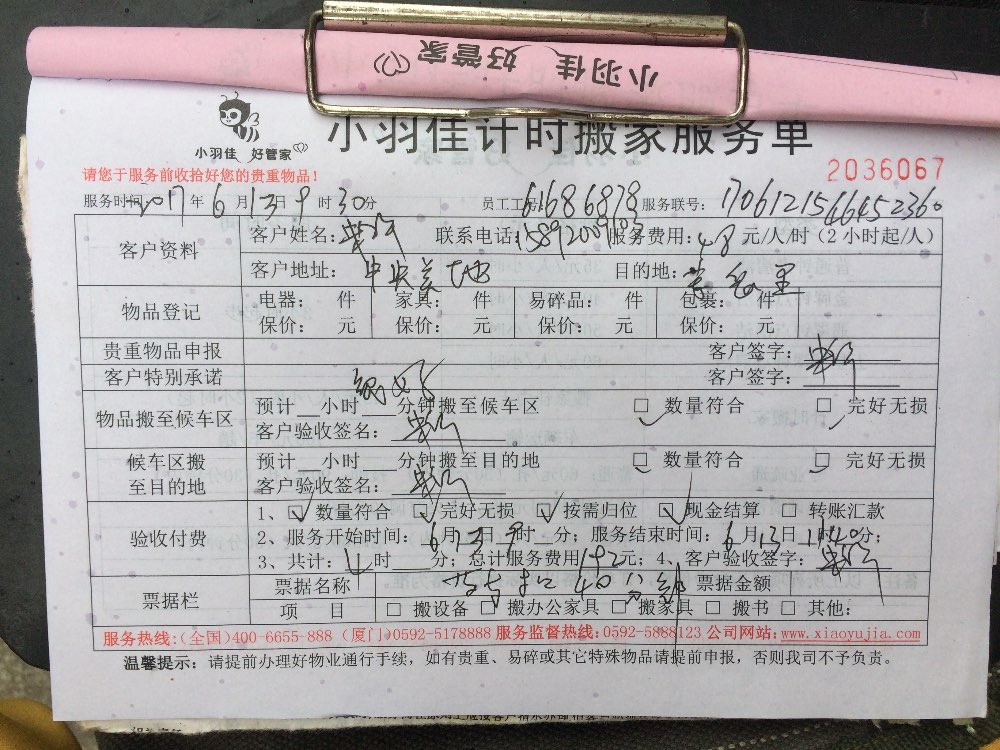 小羽佳 好管家
小羽佳 好管家
小羽佳计时搬家服务单
请您于服务前收拾好您的贵重物品！
2036067
服务时间: 2017 年 6 月 13 日 9 时 30 分 员工工号: 61686878 服务联号: 17061215466452360
客户资料 客户姓名: 联系电话: 服务费用: 48 元/人/时（2 小时起/人）
客户地址: 中央美地 目的地:
物品登记 电器: 件 家具: 件 易碎品: 件 包裹: 件
保价: 元 保价: 元 保价: 元 保价: 元
贵重物品申报 客户签字:
客户特别承诺 客户签字:
物品搬至候车区 预计__小时___分钟搬至候车区 □ 数量符合 □ 完好无损
客户验收签名:
候车区搬至目的地 预计__小时___分钟搬至目的地 □ 数量符合 □ 完好无损
客户验收签名:
验收付费 1、☑ 数量符合 ☑ 完好无损 ☑ 按需归位 ☑ 现金结算 □ 转账汇款
2、服务开始时间: 6月13日9时__分; 服务结束时间: 6月13日1时40分;
3、共计: 4时___分; 总计服务费用192元; 4、客户验收签字:
票据栏 票据名称 40分 票据金额
项 目 □ 搬设备 □ 搬办公家具 □ 搬家具 □ 搬书 □ 其他:
服务热线:(全国)400-6655-888 (厦门)0592-5178888 服务监督热线:0592-5888123 公司网站:www.xiaoyujia.com
温馨提示: 请提前办理好物业通行手续，如有贵重、易碎或其它特殊物品请提前申报，否则我司不予负责。